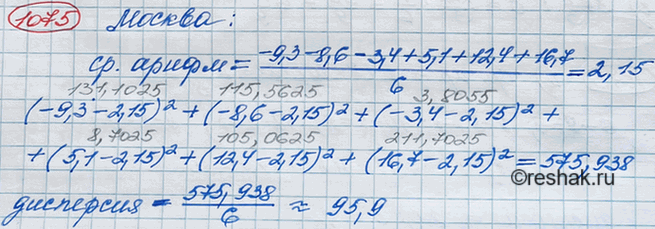 1075 Москва:
ср. арифм = (-9,3-8,6-3,4+5,1+12,4+16,7)/6 = 2,15
131,1025 115,5625 3,8055
(-9,3-2,15)² + (-8,6-2,15)² + (-3,4-2,15)² +
8,7025 105,0625 211,7025
+ (5,1-2,15)² + (12,4-2,15)² + (16,7-2,15)² = 575,938
дисперсия = 575,938/6 ≈ 95,9
©reshak.ru